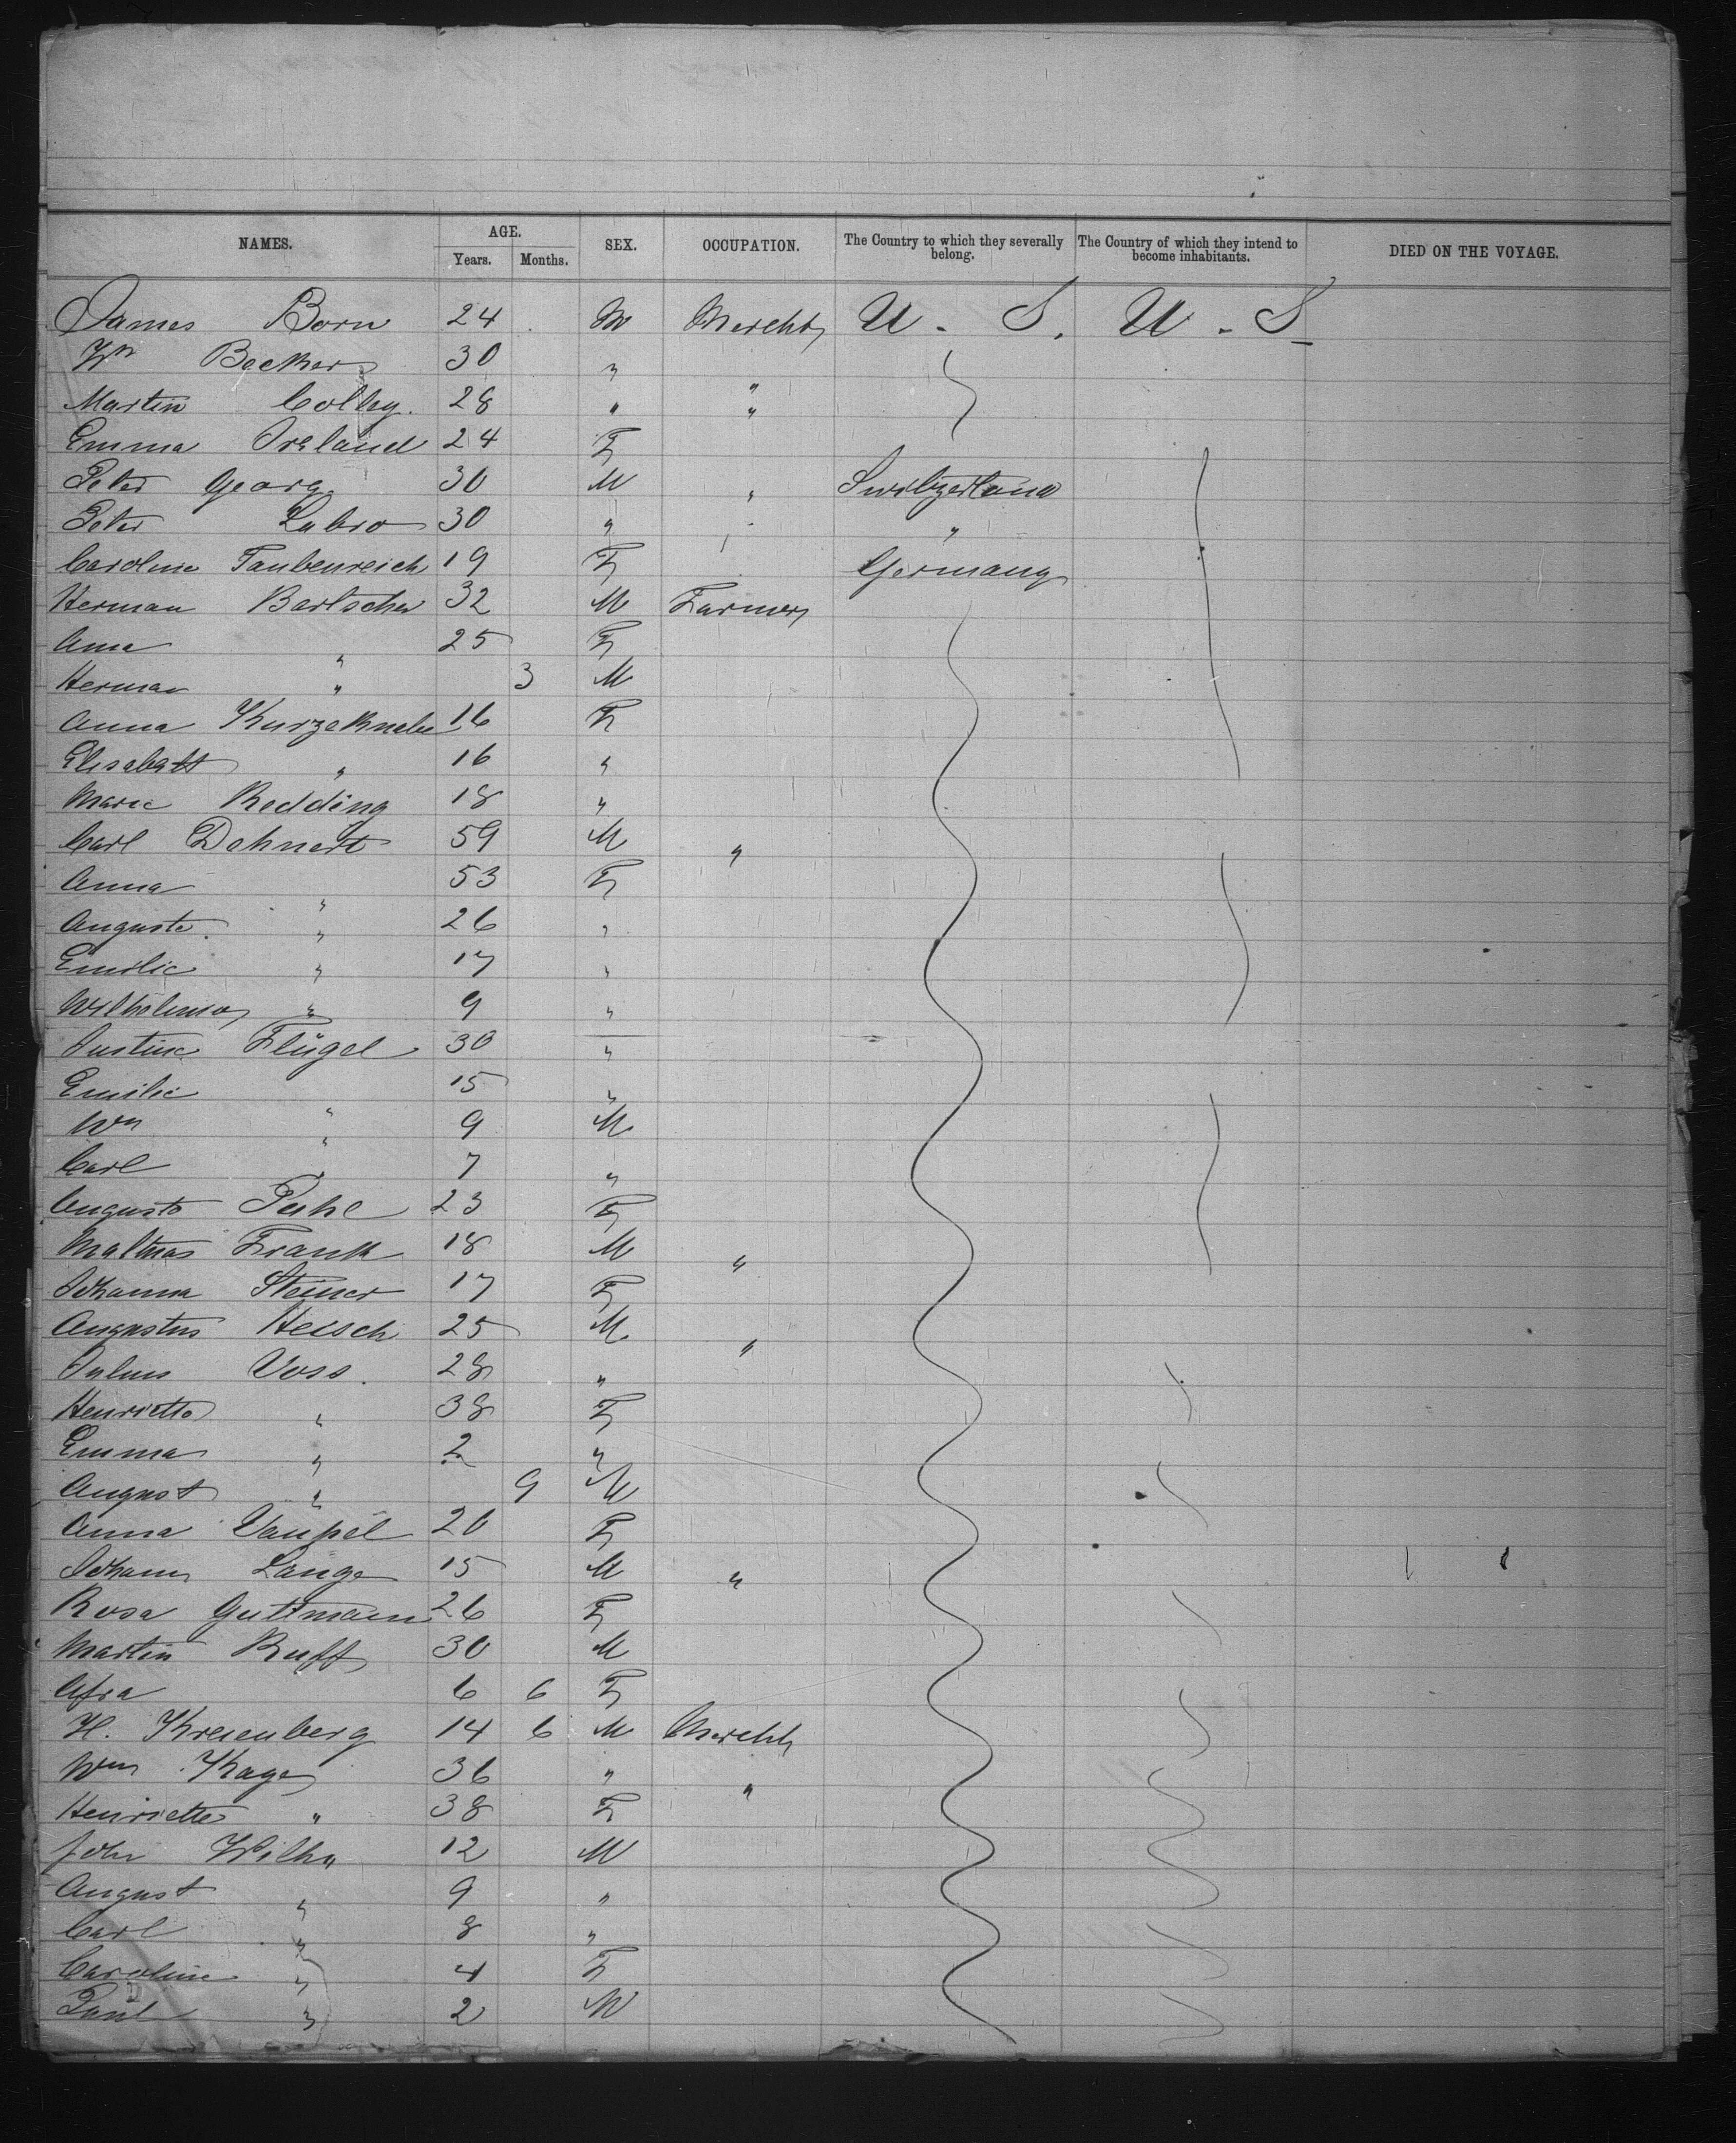 NAMES. AGE. Years. Months. SEX. OCCUPATION. The Country to which they severally belong. The Country of which they intend to become inhabitants. DIED ON THE VOYAGE.
James Born 24 M Mercht U. S. U. S
Wm Becker 30 "
Martin Colley. 28 " "
Emma Ireland 24 F
Peter Georg 30 M " Switzerland
Peter Labro 30 " "
Caroline Taubenreich 19 F Germany
Herman Bartscher 32 M Farmer
Anna " 25 F
Herman " 3 M
Anna Kurzeknabe 16 F
Elisabett " 16 "
Marie Redding 18 "
Carl Dehnert 59 M "
Anna " 53 F
Auguste " 26 "
Emilie " 17 "
Wilhelmia " 9 "
Justine Flügel 30 "
Emilie " 15 "
Wm " 9 M
Carl " 7 "
Auguste Puhl 23 F
Mathias Frank 18 M "
Johanna Steiner 17 F
Augustus Heisch 25 M "
Julius Voss. 28 "
Henrietta " 38 F
Emma " 2 "
August " 9 M
Anna Vaupel 20 F
Johann Lange 15 M "
Rosa Guttmann 26 F
Martin Ruff 30 M
Afra 6 6 F
H. Kreienberg 14 6 M Mercht
Wm Kage 36 " "
Henriette " 38 F
John Wilh" 12 M
August " 9 "
Carl " 8 "
Caroline " 4 F
Paul " 2 M